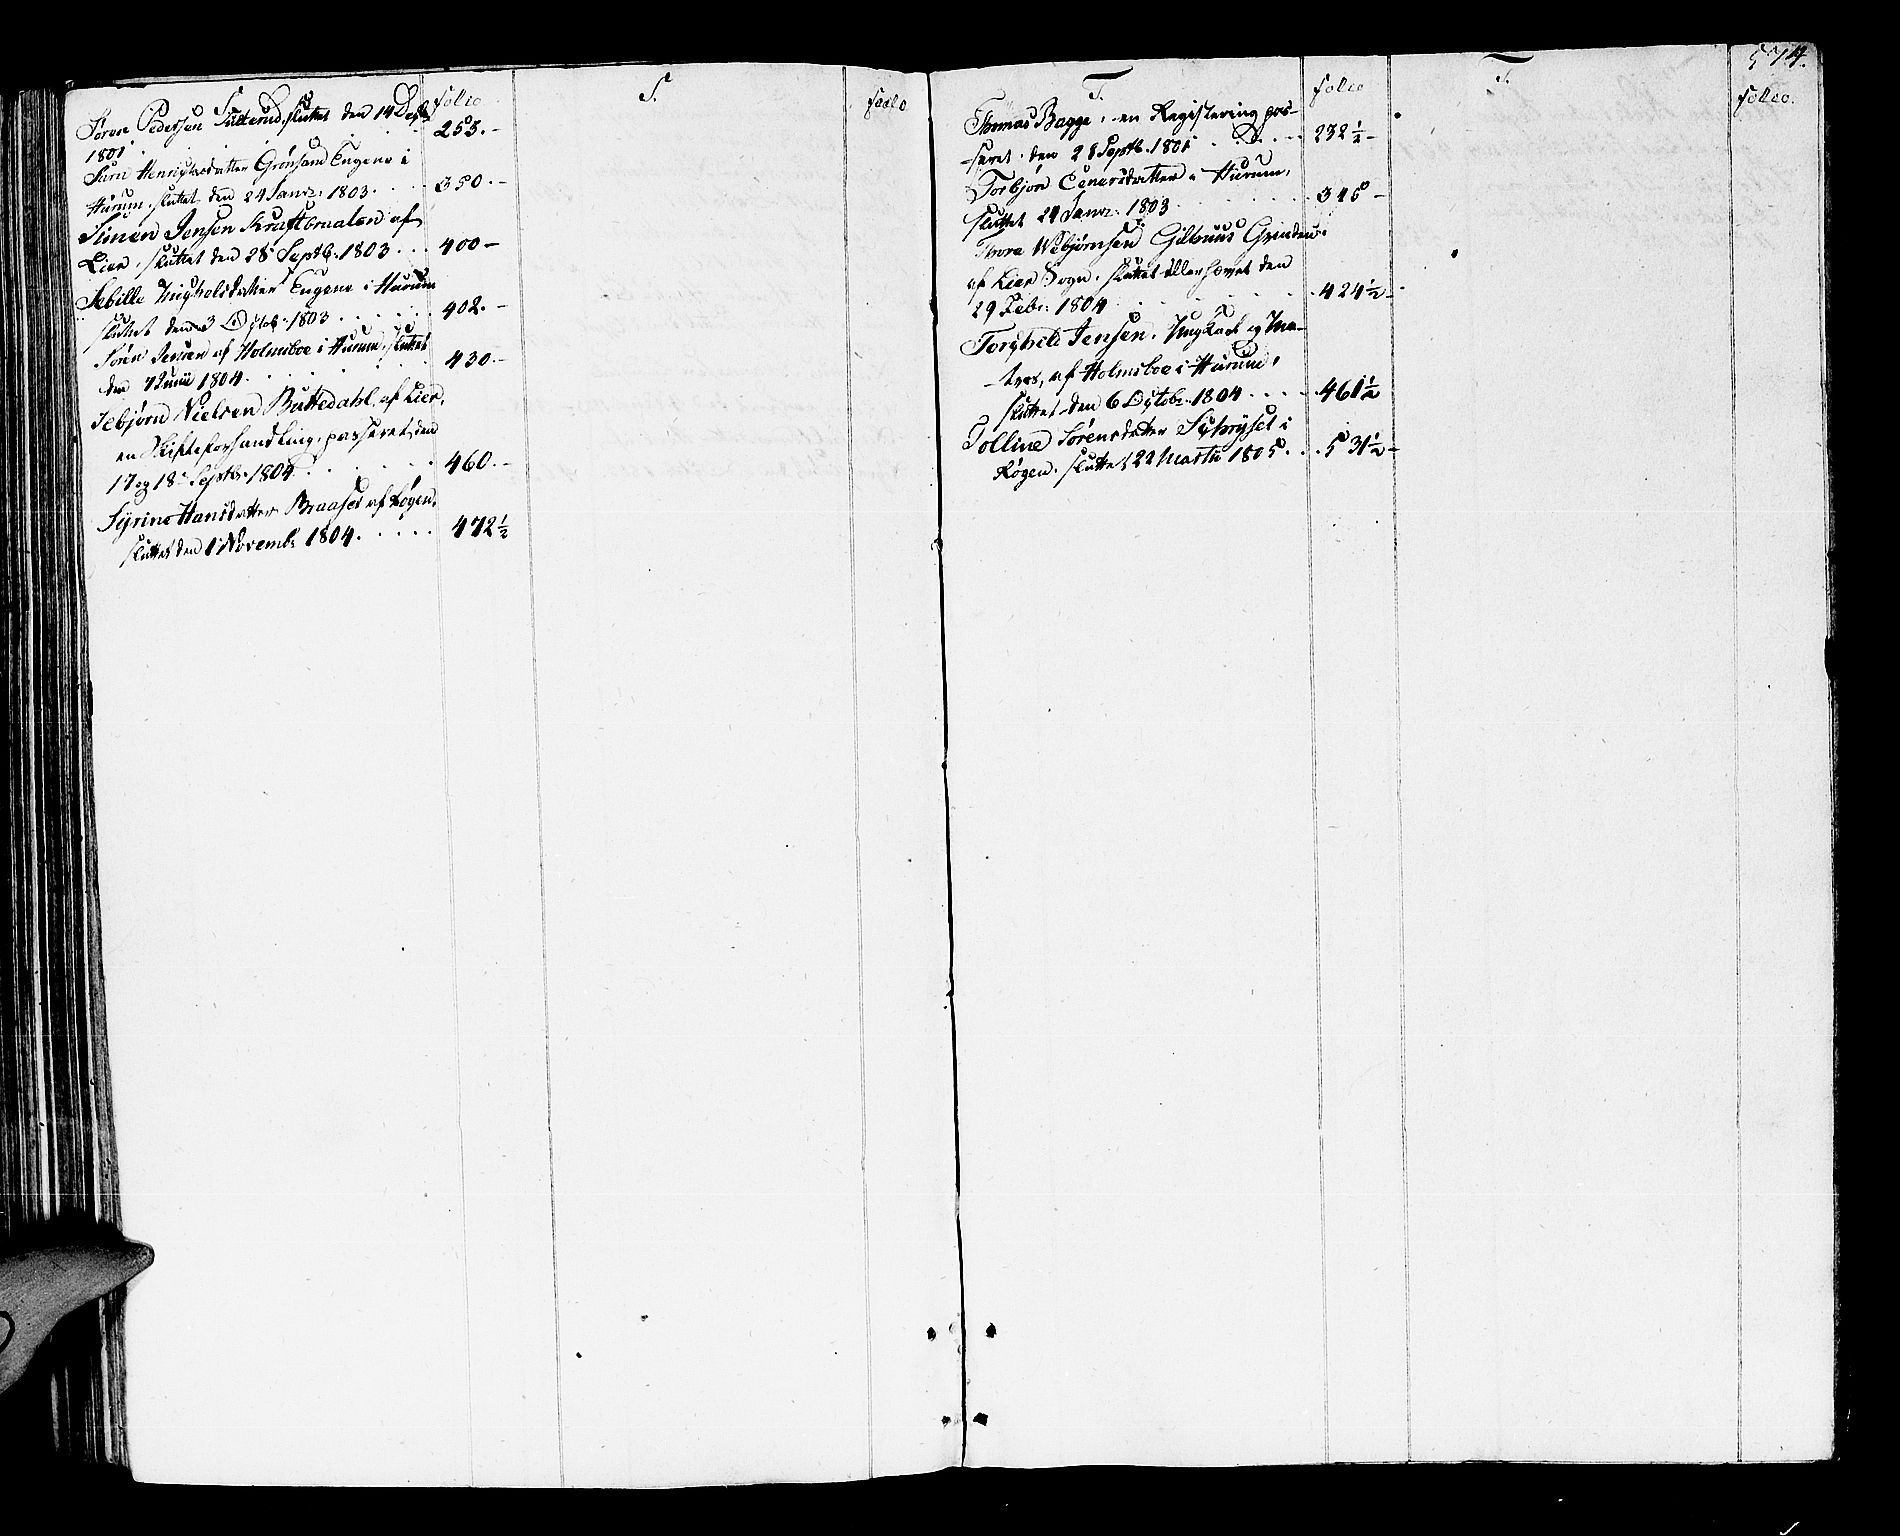 S.
folio
Søren Pedersen Sætterud, sluttet den 14 Decbr.
1801 . . . 253.-
Sara Henrichsdatter Grønsand Eugene i
Hurum, sluttet den 24 Janr: 1803. . . . 350.-
Simen Jensen Kraftbrualen af
Lier, sluttet den 28 Septb. 1803 . . . 400-
Sebille datter Eugene i Hurum
sluttet den 3 Octob. 1803 . . . . . . 402.-
Søren Jensen af Holmsboe i Hurum, sluttet
den 7 Junii 1804. . . . . . . . 430.-
Sebjørn Nielsen Buttedahl af Lier,
en Skifteforhandling, passeret den
17 og 18 Septbr. 1804 . . . . . 460.-
Syrine Hansdatter Braaset af Røgen,
sluttet den 1 Novemb: 1804. . . . . 472½
S.
folio
T.
folio
Thomas Bagge, en Registering pas-
seret den 28 Septb. 1801 . . . . 232½-
Torbjør Enersdatter i Hurum,
sluttet 24 Janr: 1803 . . . . . . . . 345-
Thore Webjørnsen Gilhuus
af Lier Sogn, sluttet den
29 Febr: 1804 . . . . . . . 424½-
Torchild Jensen, Ungkarl og Ma-
tros, af Holmsboe i Hurum,
sluttet den 6 Octobr. 1804 . . . . 461½
Tolline Sørensdatter i
Røgen, sluttet 22 Martii 1805 . . . 531½-
T.
574.
folio.